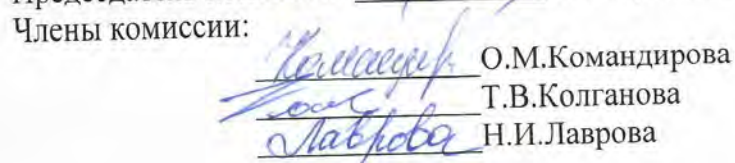 Члены комиссии:
О.М.Командирова
Т.В.Колганова
Лаврова Н.И.Лаврова